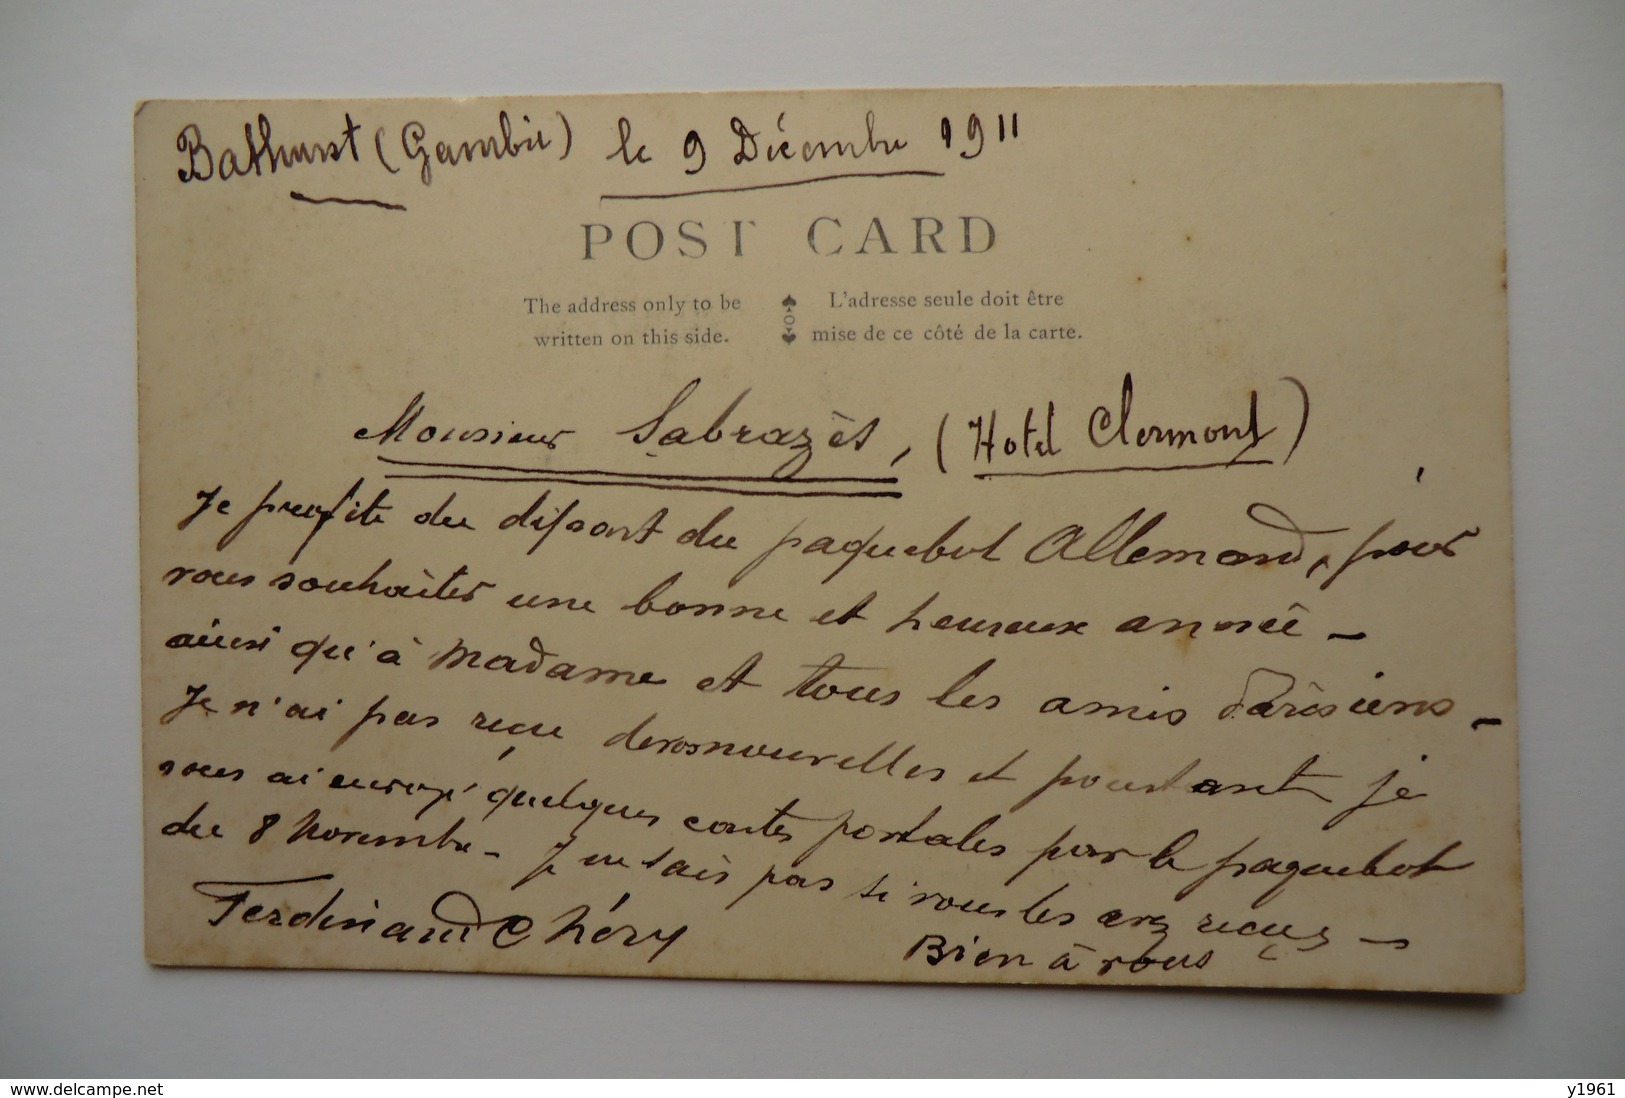 Bathurst (Gambie) le 9 Décembre 1911
POST CARD
The address only to be
written on this side.
L'adresse seule doit être
mise de ce côté de la carte.
Monsieur Sabrazès, (Hotel Clermont)
Je profite du départ du paquebot Allemand, pour
vous souhaiter une bonne et heureuse année -
ainsi qu'à Madame et tous les amis Parisiens -
Je n'ai pas reçu de vos nouvelles et pourtant je
vous ai envoyé quelques cartes postales par le paquebot
du 8 Novembre - Je ne sais pas si vous les avez reçues -
Ferdinand Chéry
Bien à vous
delcampe.net
y1961